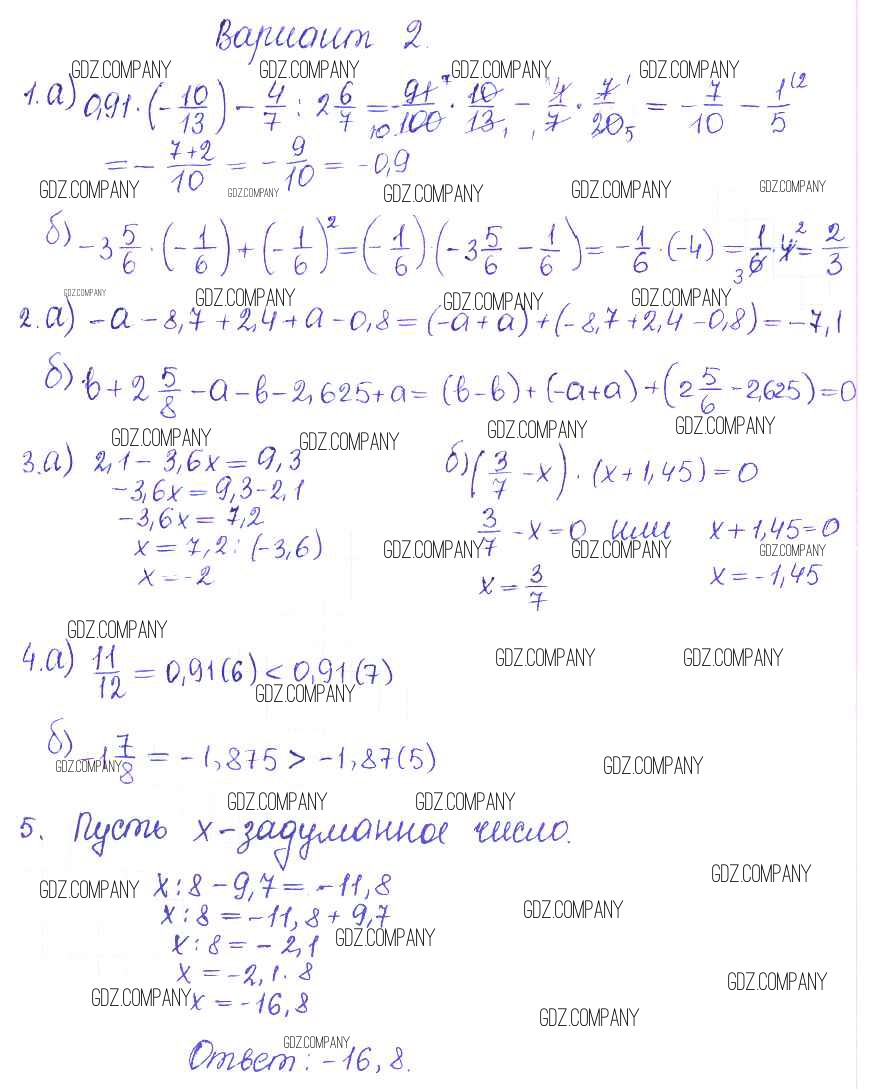 Вариант 2.
GDZ.COMPANY GDZ.COMPANY GDZ.COMPANY GDZ.COMPANY
1. а) 0,91 · (-10/13) - 4/7 : 2 6/7 = -91/100 · 10/13 - 4/7 · 7/20 = -7/10 - 1/5
= - (7+2)/10 = - 9/10 = -0,9
GDZ.COMPANY GDZ.COMPANY GDZ.COMPANY GDZ.COMPANY GDZ.COMPANY
б) -3 5/6 · (-1/6) + (-1/6)² = (-1/6) (-3 5/6 - 1/6) = -1/6 · (-4) = 1/6 · 4 = 2/3
GDZ.COMPANY GDZ.COMPANY GDZ.COMPANY GDZ.COMPANY
2. а) -а - 8,7 + 2,4 + а - 0,8 = (-а + а) + (-8,7 + 2,4 - 0,8) = -7,1
б) в + 2 5/8 - а - в - 2,625 + а = (в - в) + (-а + а) + (2 5/6 - 2,625) = 0
GDZ.COMPANY GDZ.COMPANY GDZ.COMPANY GDZ.COMPANY
3. а) 2,1 - 3,6х = 9,3
-3,6х = 9,3 - 2,1
-3,6х = 7,2
х = 7,2 : (-3,6)
х = -2
б) (3/7 - х) · (х + 1,45) = 0
3/7 - х = 0 или х + 1,45 = 0
GDZ.COMPANY GDZ.COMPANY GDZ.COMPANY
х = 3/7 х = -1,45
GDZ.COMPANY GDZ.COMPANY GDZ.COMPANY
4. а) 11/12 = 0,91(6) < 0,91(7)
GDZ.COMPANY
б) -1 7/8 = -1,875 > -1,87(5)
GDZ.COMPANY GDZ.COMPANY
GDZ.COMPANY GDZ.COMPANY
5. Пусть х - задуманное число.
GDZ.COMPANY GDZ.COMPANY
х : 8 - 9,7 = -11,8
х : 8 = -11,8 + 9,7
GDZ.COMPANY
х : 8 = -2,1
GDZ.COMPANY
х = -2,1 · 8
GDZ.COMPANY
х = -16,8
GDZ.COMPANY GDZ.COMPANY
GDZ.COMPANY
Ответ: -16,8.